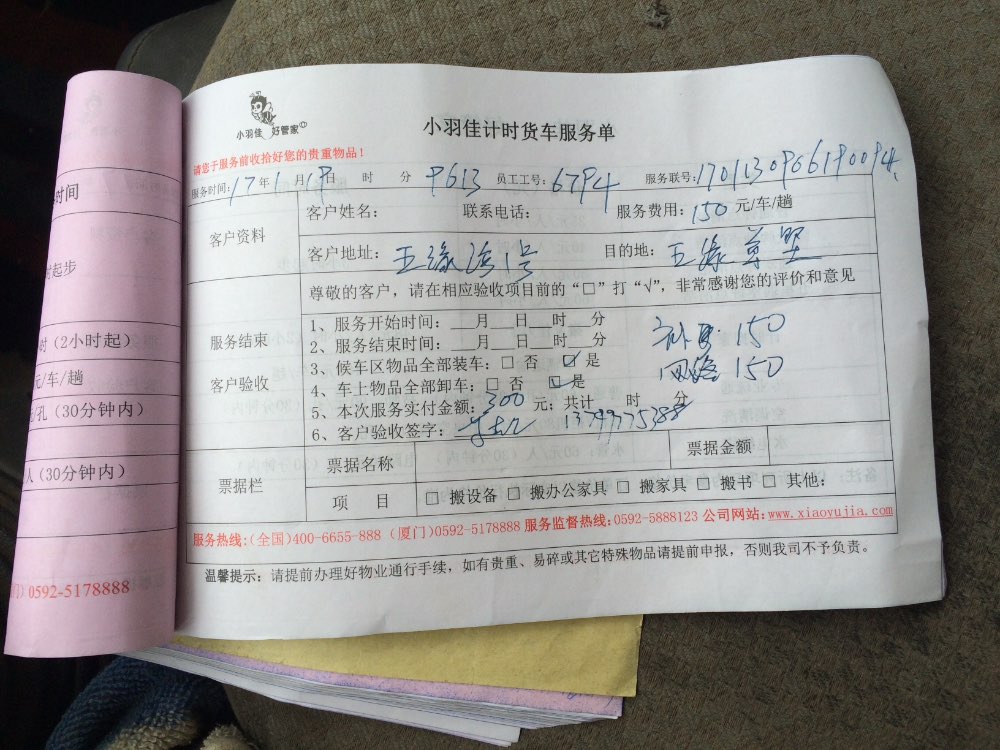 小羽佳 好管家
小羽佳计时货车服务单
请您于服务前收拾好您的贵重物品！
服务时间：17年1月19日 时 分 9613 员工工号：6794 服务联号：
客户资料
客户姓名： 联系电话： 服务费用：150 元/车/趟
客户地址：五缘 目的地：五缘尊墅
尊敬的客户，请在相应验收项目前的“□”打“√”，非常感谢您的评价和意见
服务结束
客户验收
1、服务开始时间：__月__日__时__分
2、服务结束时间：__月__日__时__分 150
3、候车区物品全部装车：□ 否 ☑ 是 150
4、车上物品全部卸车：□ 否 ☑ 是
5、本次服务实付金额：300 元；共计 时 分
6、客户验收签字：
票据栏
票据名称 票据金额
项 目 □ 搬设备 □ 搬办公家具 □ 搬家具 □ 搬书 □ 其他：
服务热线：(全国)400-6655-888 (厦门)0592-5178888 服务监督热线：0592-5888123 公司网站：www.xiaoyujia.com
温馨提示：请提前办理好物业通行手续，如有贵重、易碎或其它特殊物品请提前申报，否则我司不予负责。
时间
时起步
时(2小时起)
元/车/趟
孔(30分钟内)
人(30分钟内)
0592-5178888